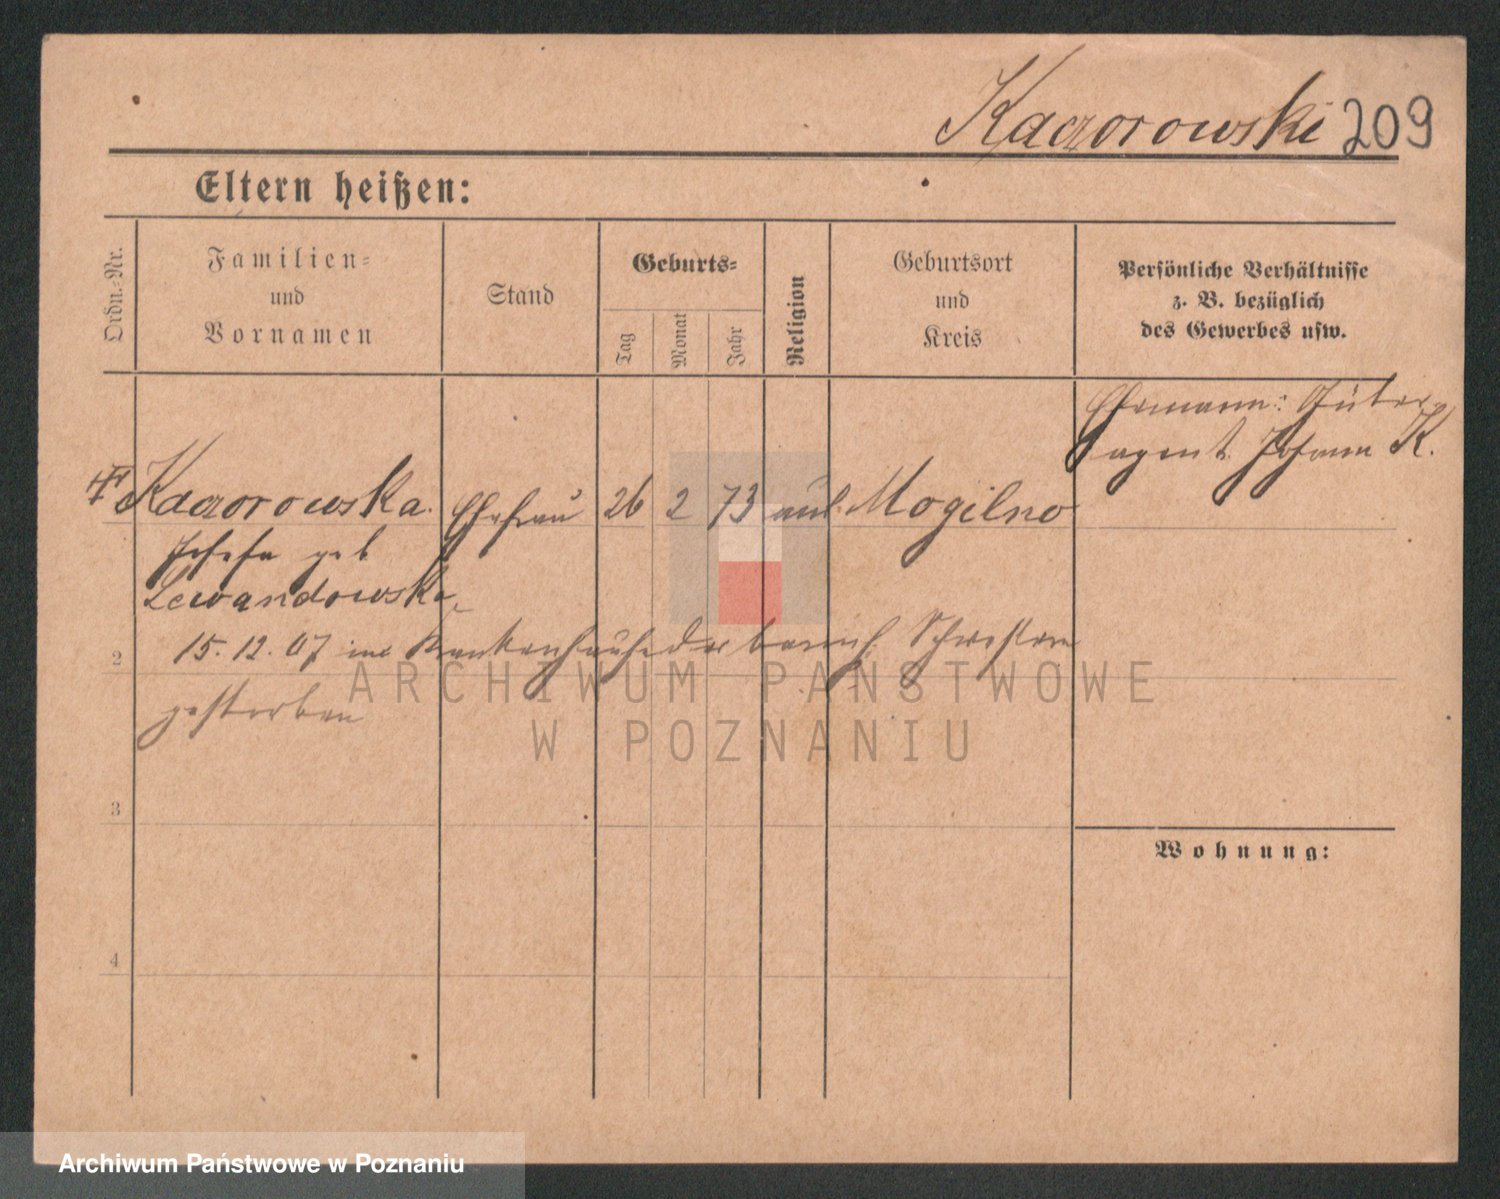 Kaczorowski 209
Eltern heißen:
Ordn.-Nr.
Familien-
und
Vornamen
Stand
Geburts-
Tag
Monat
Jahr
Religion
Geburtsort
und
Kreis
Persönliche Verhältnisse
z. B. bezüglich
des Gewerbes usw.
Ehemann: Güter-
agent Johann K.
Kaczorowska Ehefrau 26 2 73 Mogilno
Josefa geb
Lewandowska
2
15.12.07 im Krankenhause der barmh. Schwestern
gestorben
3
Wohnung:
4
ARCHIWUM PAŃSTWOWE
W POZNANIU
Archiwum Państwowe w Poznaniu